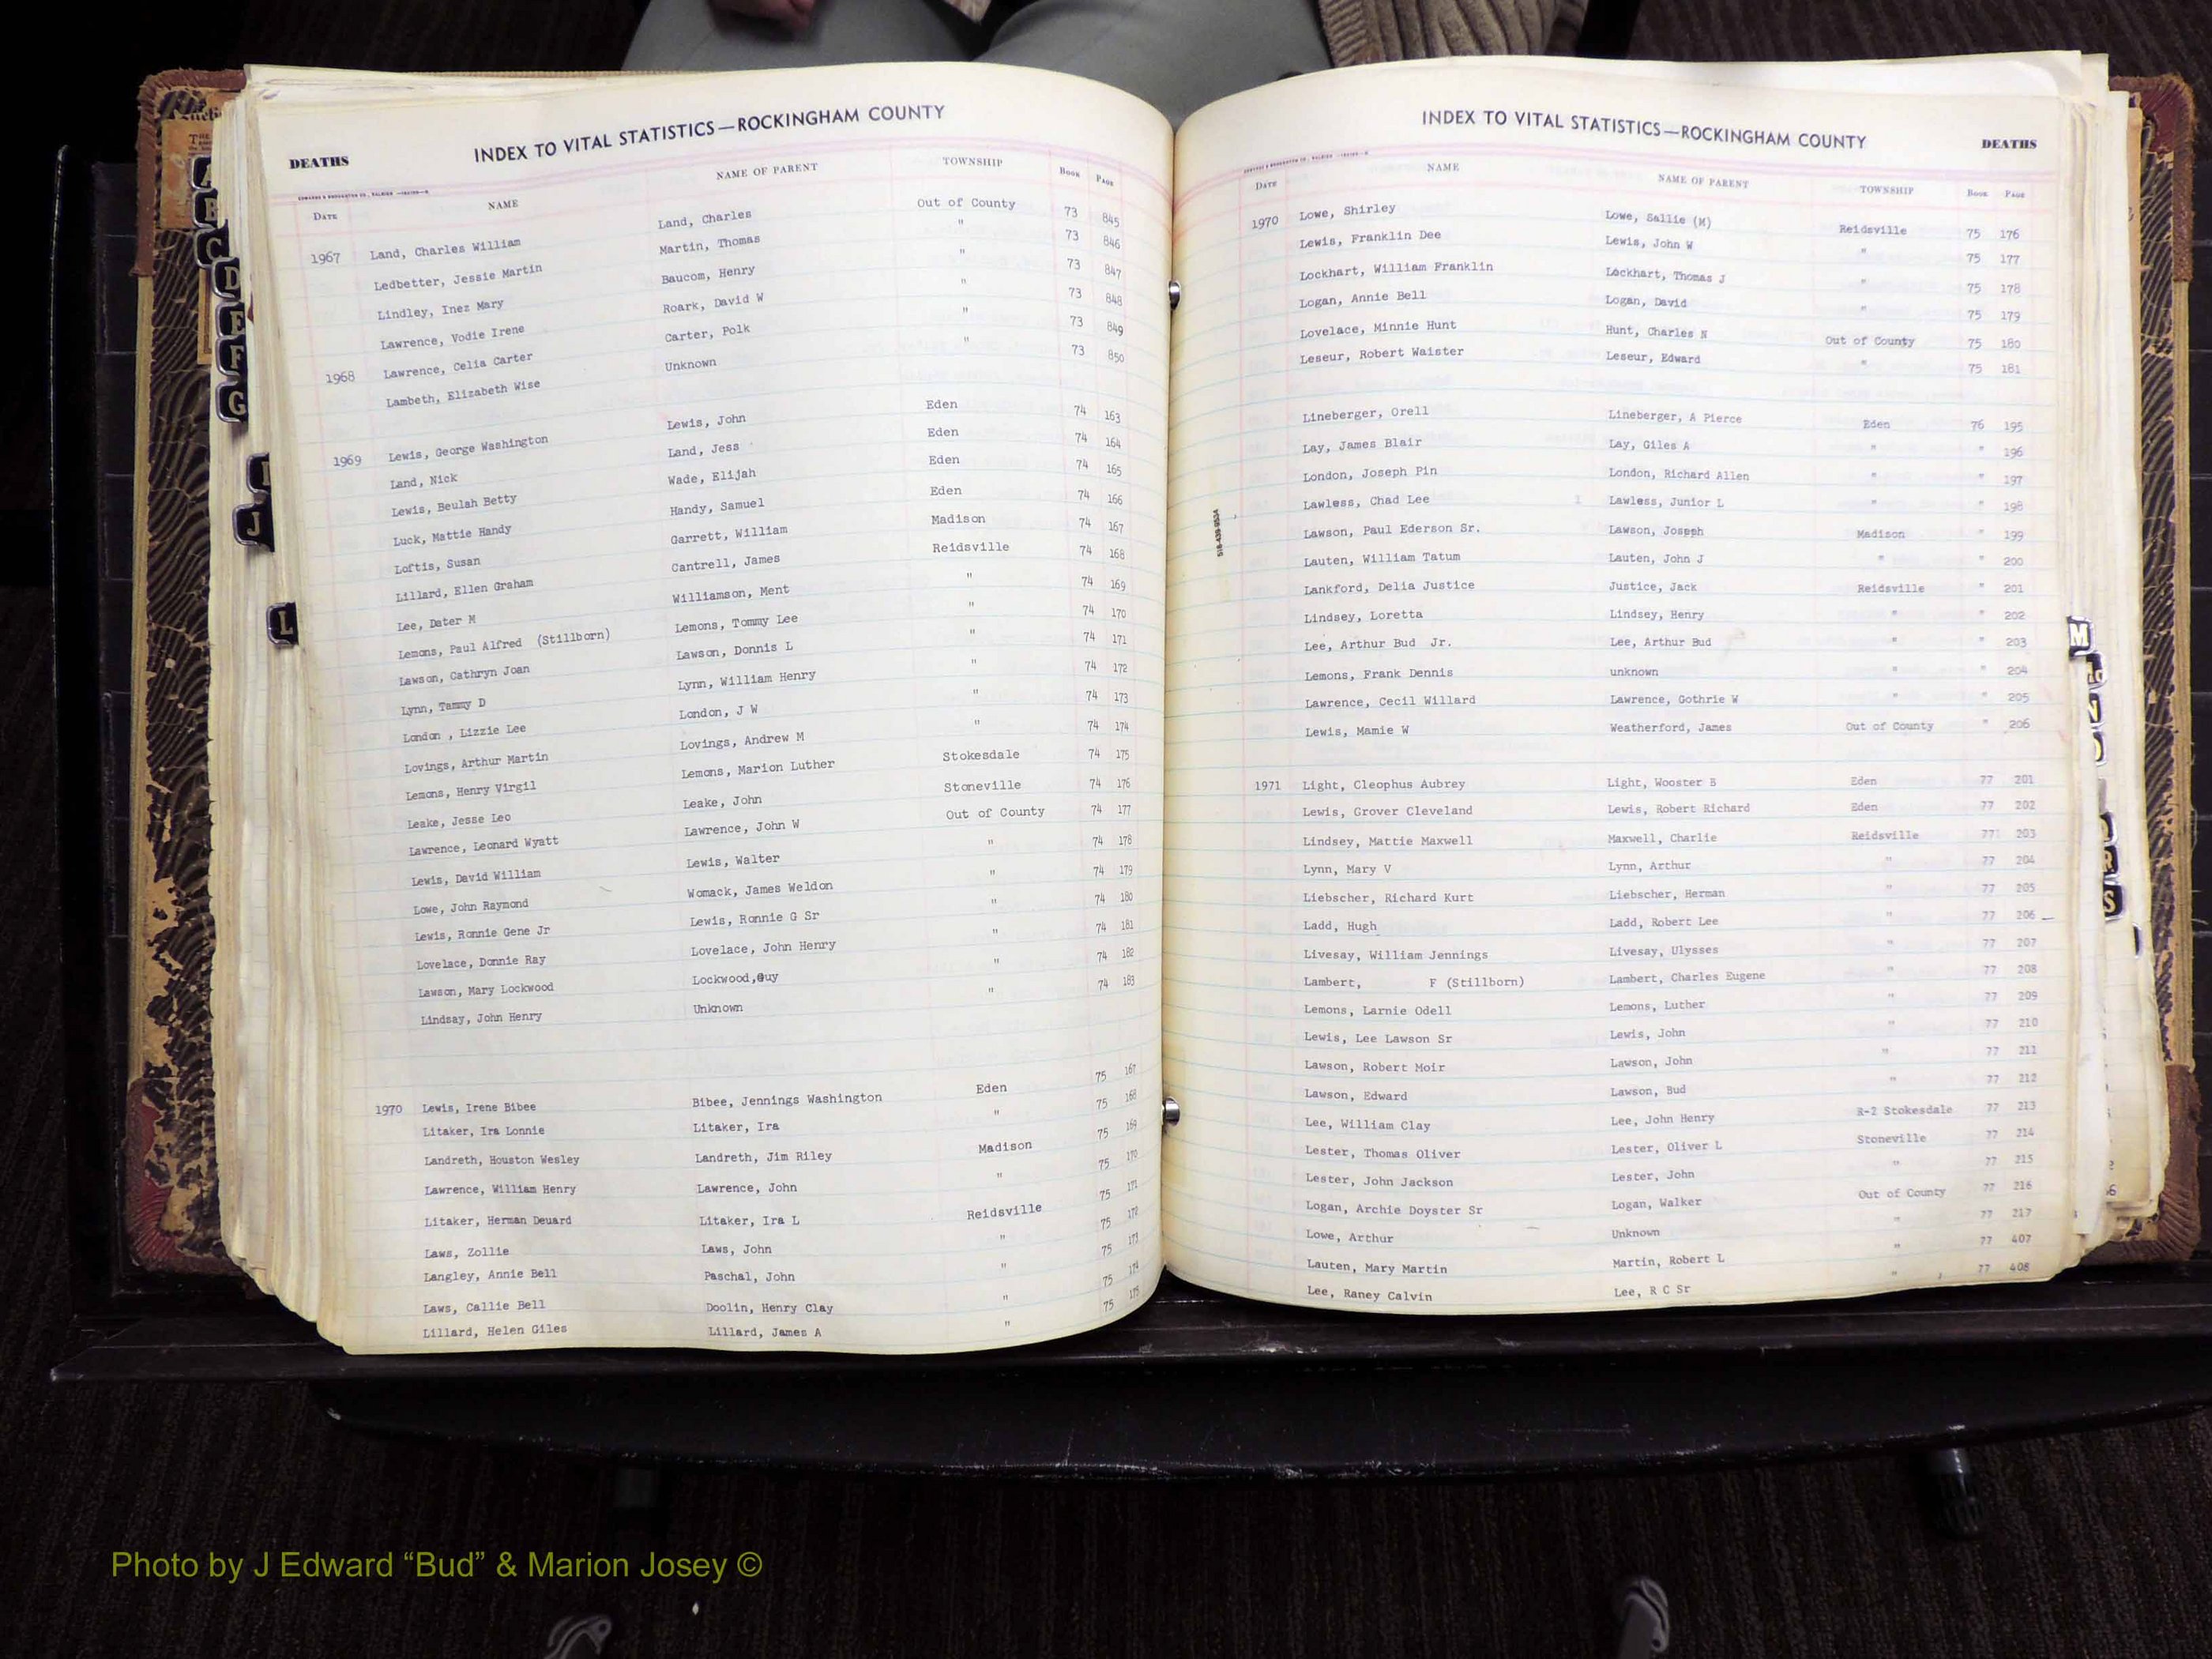 INDEX TO VITAL STATISTICS—ROCKINGHAM COUNTY
DEATHS
DATE NAME NAME OF PARENT TOWNSHIP BOOK PAGE
1967 Land, Charles William Land, Charles Out of County 73 845
Ledbetter, Jessie Martin Martin, Thomas " 73 846
Lindley, Inez Mary Baucom, Henry " 73 847
Lawrence, Vodie Irene Roark, David W " 73 848
1968 Lawrence, Celia Carter Carter, Polk " 73 849
Lambeth, Elizabeth Wise Unknown " 73 850
1969 Lewis, George Washington Lewis, John Eden 74 163
Land, Nick Land, Jess Eden 74 164
Lewis, Beulah Betty Wade, Elijah Eden 74 165
Luck, Mattie Handy Handy, Samuel Eden 74 166
Loftis, Susan Garrett, William Madison 74 167
Lillard, Ellen Graham Cantrell, James Reidsville 74 168
Lee, Dater M Williamson, Ment " 74 169
Lemons, Paul Alfred (Stillborn) Lemons, Tommy Lee " 74 170
Lawson, Cathryn Joan Lawson, Donnis L " 74 171
Lynn, Tammy D Lynn, William Henry " 74 172
London , Lizzie Lee London, J W " 74 173
Lovings, Arthur Martin Lovings, Andrew M " 74 174
Lemons, Henry Virgil Lemons, Marion Luther Stokesdale 74 175
Leake, Jesse Leo Leake, John Stoneville 74 176
Lawrence, Leonard Wyatt Lawrence, John W Out of County 74 177
Lewis, David William Lewis, Walter " 74 178
Lowe, John Raymond Womack, James Weldon " 74 179
Lewis, Ronnie Gene Jr Lewis, Ronnie G Sr " 74 180
Lovelace, Donnie Ray Lovelace, John Henry " 74 181
Lawson, Mary Lockwood Lockwood,Guy " 74 182
Lindsay, John Henry Unknown " 74 183
1970 Lewis, Irene Bibee Bibee, Jennings Washington Eden 75 167
Litaker, Ira Lonnie Litaker, Ira " 75 168
Landreth, Houston Wesley Landreth, Jim Riley Madison 75 169
Lawrence, William Henry Lawrence, John " 75 170
Litaker, Herman Deuard Litaker, Ira L Reidsville 75 171
Laws, Zollie Laws, John " 75 172
Langley, Annie Bell Paschal, John " 75 173
Laws, Callie Bell Doolin, Henry Clay " 75 174
Lillard, Helen Giles Lillard, James A " 75 175
INDEX TO VITAL STATISTICS—ROCKINGHAM COUNTY
DEATHS
DATE NAME NAME OF PARENT TOWNSHIP BOOK PAGE
1970 Lowe, Shirley Lowe, Sallie (M) Reidsville 75 176
Lewis, Franklin Dee Lewis, John W " 75 177
Lockhart, William Franklin Lockhart, Thomas J " 75 178
Logan, Annie Bell Logan, David " 75 179
Lovelace, Minnie Hunt Hunt, Charles N Out of County 75 180
Leseur, Robert Waister Leseur, Edward " 75 181
Lineberger, Orell Lineberger, A Pierce Eden 76 195
Lay, James Blair Lay, Giles A " " 196
London, Joseph Pin London, Richard Allen " " 197
Lawless, Chad Lee Lawless, Junior L " " 198
Lawson, Paul Ederson Sr. Lawson, Joseph Madison " 199
Lauten, William Tatum Lauten, John J " " 200
Lankford, Delia Justice Justice, Jack Reidsville " 201
Lindsey, Loretta Lindsey, Henry " " 202
Lee, Arthur Bud Jr. Lee, Arthur Bud " " 203
Lemons, Frank Dennis unknown " " 204
Lawrence, Cecil Willard Lawrence, Gothrie W " " 205
Lewis, Mamie W Weatherford, James Out of County " 206
1971 Light, Cleophus Aubrey Light, Wooster B Eden 77 201
Lewis, Grover Cleveland Lewis, Robert Richard Eden 77 202
Lindsey, Mattie Maxwell Maxwell, Charlie Reidsville 77 203
Lynn, Mary V Lynn, Arthur " 77 204
Liebscher, Richard Kurt Liebscher, Herman " 77 205
Ladd, Hugh Ladd, Robert Lee " 77 206
Livesay, William Jennings Livesay, Ulysses " 77 207
Lambert, F (Stillborn) Lambert, Charles Eugene " 77 208
Lemons, Larnie Odell Lemons, Luther " 77 209
Lewis, Lee Lawson Sr Lewis, John " 77 210
Lawson, Robert Moir Lawson, John " 77 211
Lawson, Edward Lawson, Bud " 77 212
Lee, William Clay Lee, John Henry R-2 Stokesdale 77 213
Lester, Thomas Oliver Lester, Oliver L Stoneville 77 214
Lester, John Jackson Lester, John " 77 215
Logan, Archie Doyster Sr Logan, Walker Out of County 77 216
Lowe, Arthur Unknown " 77 217
Lauten, Mary Martin Martin, Robert L " 77 407
Lee, Raney Calvin Lee, R C Sr " 77 408
A
B
C
D
E
F
G
J
L
M
N
R
S
Photo by J Edward “Bud” & Marion Josey ©